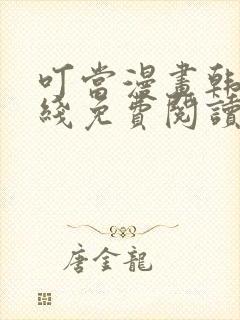 叮當漫畫韩
綫免費閱讀
唐金龍